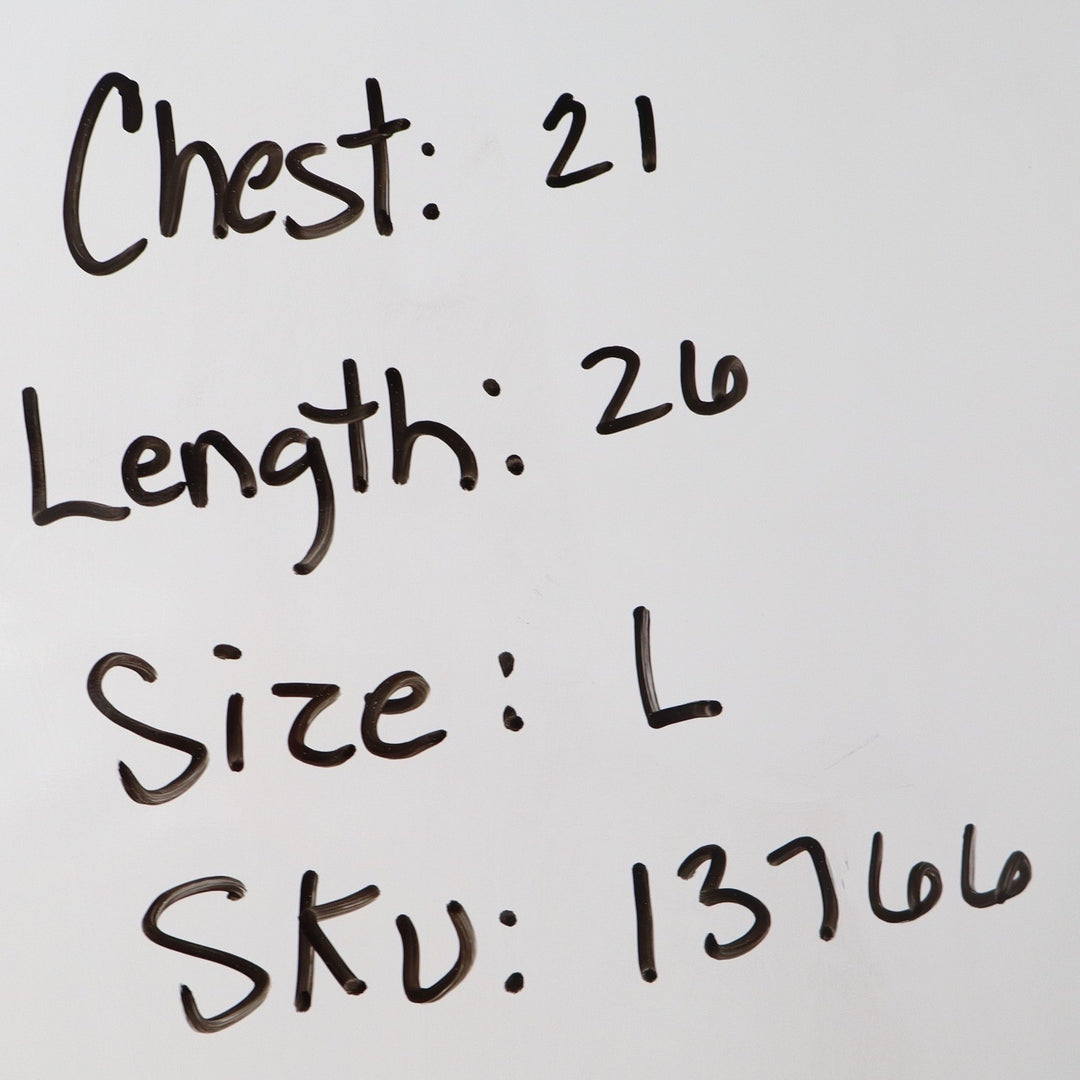 Chest: 21
Length: 26
Size: L
SKU: 13766